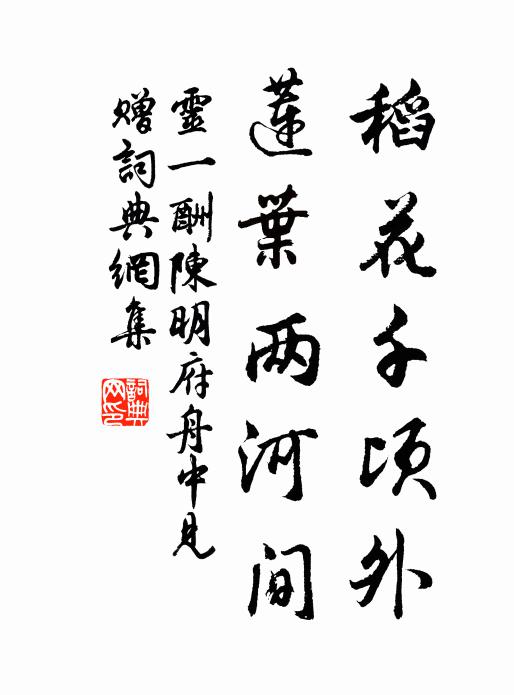 稻花千頃外
蓮葉两河間
靈一酬陳明府舟中見
贈詞典網集
詞典网印